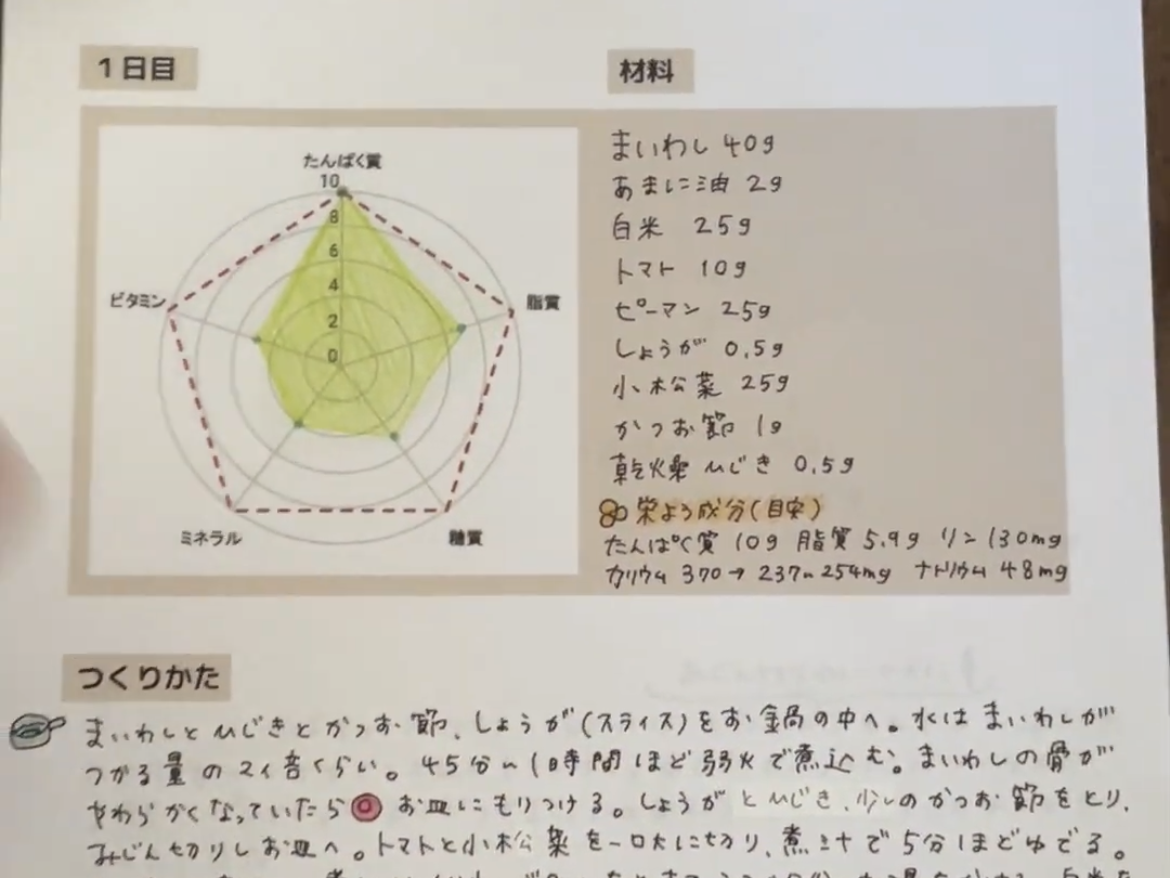 1日目
材料
たんぱく質
10
8
6
4
2
0
ビタミン
脂質
ミネラル
糖質
まいわし 40g
あまに油 2g
白米 25g
トマト 10g
ピーマン 25g
しょうが 0.5g
小松菜 25g
かつお節 1g
乾燥ひじき 0.5g
栄よう成分(目安)
たんぱく質 10g 脂質 5.9g リン 130mg
カリウム 370→237〜254mg ナトリウム 48mg
つくりかた
まいわしとひじきとかつお節、しょうが(スライス)をお鍋の中へ。水はまいわしが
つかる量の2倍くらい。45分〜1時間ほど弱火で煮込む。まいわしの骨が
やわらかくなっていたら お皿にもりつける。しょうがとひじき、少しのかつお節をとり、
みじん切りしお皿へ。トマトと小松菜を一口大に切り、煮汁で5分ほどゆでる。